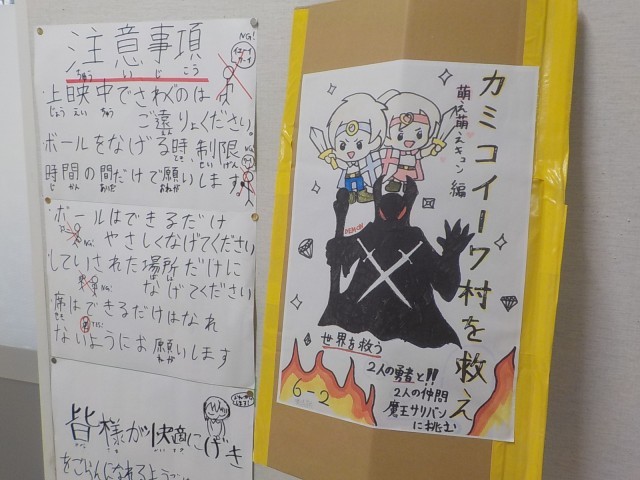 注意事項
ちゅう い じ こう
NG!
上映中でさわぐのは
じょう えい ちゅう
ご遠りょください。
えん
ボールをなげる時、制限
とき せい げん
時間の間だけで願いします。
じ かん あいだ ねが
ボールはできるだけ
NG!
やさしくなげてください
していされた場所だけに
ば しょ
NG!
なげてください
席はできるだけはなれ
せき
ないようにお願いします
ねが
皆様が快適にげき
みな さま かい てき
をごらんになれるよう
カミコイーワ村を救え
萌え萌えキュン編
世界を救う
2人の勇者と!!
2人の仲間
魔王サリバン
に挑む
6-2